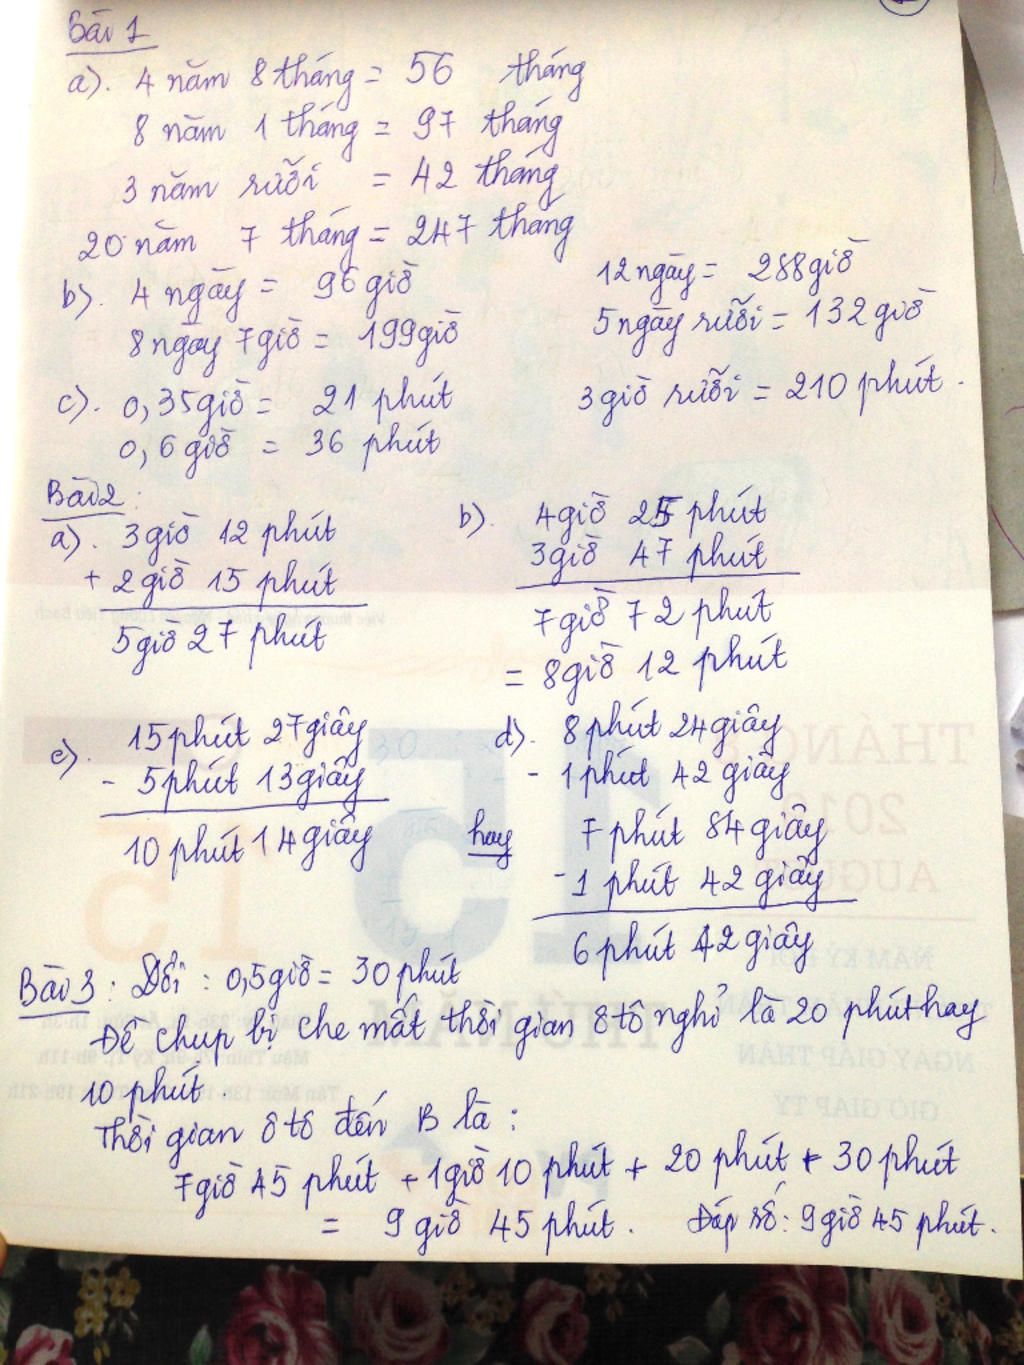 Bài 1
a). 4 năm 8 tháng = 56 tháng
8 năm 1 tháng = 97 tháng
3 năm rưỡi = 42 tháng
20 năm 7 tháng = 247 tháng
b). 4 ngày = 96 giờ
12 ngày = 288 giờ
8 ngày 7 giờ = 199 giờ
5 ngày rưỡi = 132 giờ
c). 0,35 giờ = 21 phút
3 giờ rưỡi = 210 phút.
0,6 giờ = 36 phút
Bài 2:
a). 3 giờ 12 phút
+ 2 giờ 15 phút
5 giờ 27 phút
b). 4 giờ 25 phút
3 giờ 47 phút
7 giờ 72 phút
= 8 giờ 12 phút
c). 15 phút 27 giây
- 5 phút 13 giây
10 phút 14 giây
d). 8 phút 24 giây
- 1 phút 42 giây
hay 7 phút 84 giây
- 1 phút 42 giây
6 phút 42 giây
Bài 3: Đổi: 0,5 giờ = 30 phút
Đề chụp bị che mất thời gian ô tô nghỉ là 20 phút hay
10 phút.
Thời gian ô tô đến B là:
7 giờ 45 phút + 1 giờ 10 phút + 20 phút + 30 phút
= 9 giờ 45 phút. Đáp số: 9 giờ 45 phút.
15
THÁNG 8
2019
AUGUST
THỨ NĂM
NGÀY GIÁP THÂN
GIỜ GIÁP TÝ